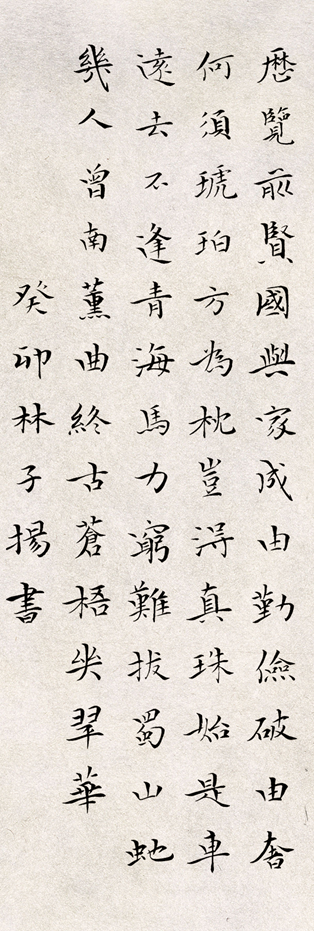 歷覽前賢國與家成由勤儉破由奢
何須琥珀方為枕豈得真珠始是車
遠去不逢青海馬力窮難拔蜀山虵
幾人曾南薰曲終古蒼梧哭翠華
癸卯林子揚書